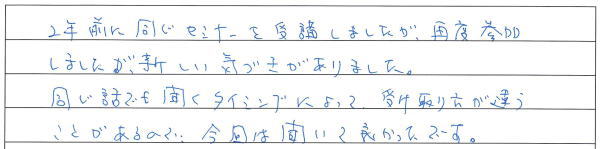 2年前に同じセミナーを受講しましたが、再度参加
しましたが、新しい気づきがありました。
同じ話でも聞くタイミングによって、受け取り方が違う
ことがあるので、今回は聞いて良かったです。